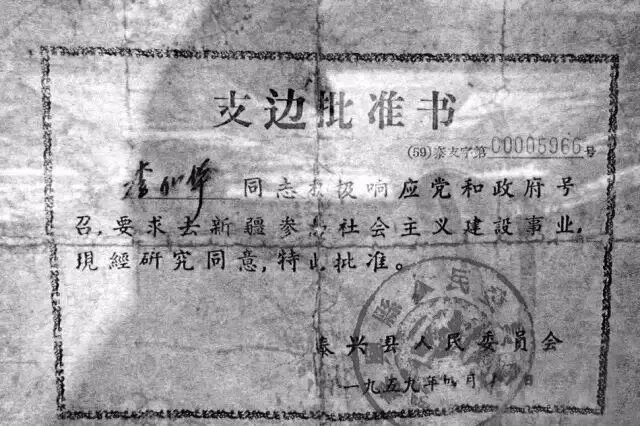 支边批准书
(59)泰支字第00005966号
李 华 同志积极响应党和政府号
召,要求去新疆参加社会主义建設事业,
現經研究同意,特此批准。
泰兴县人民委員会
一九五九年 月 日